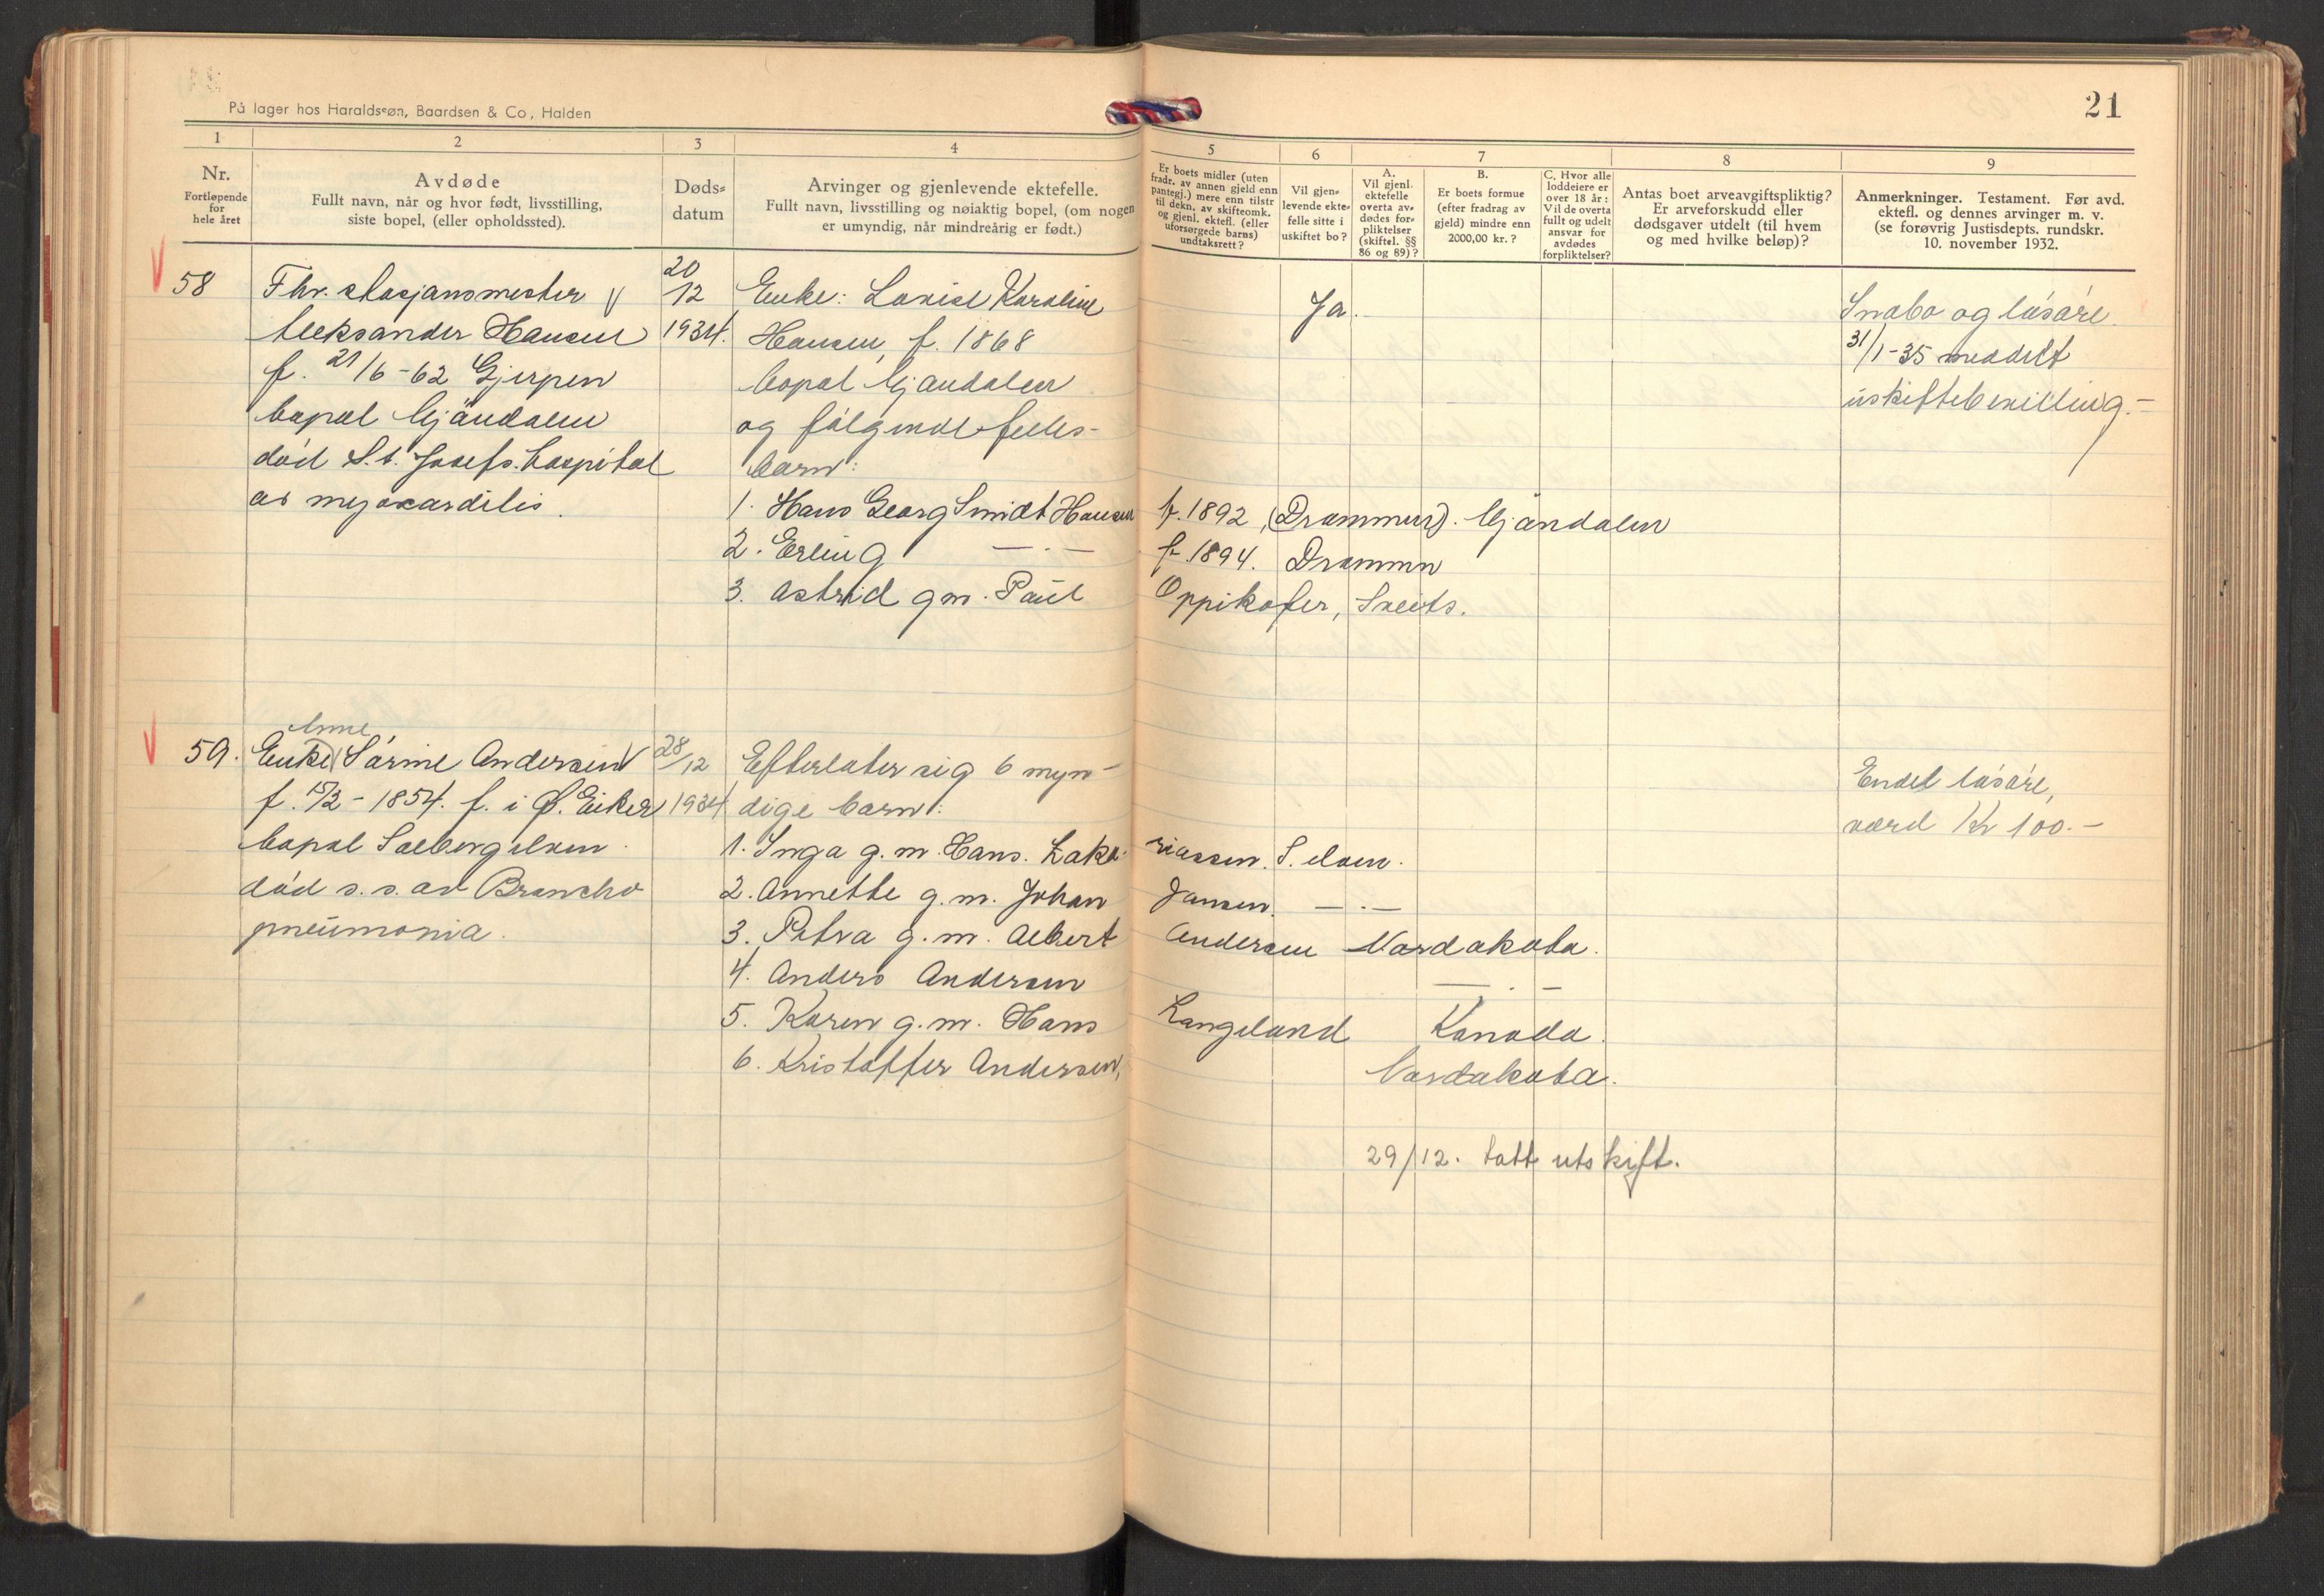 På lager hos Haraldssøn, Baardsen & Co, Halden
21
1
2
3
4
5
6
7
8
9
Nr.
Fortløpende
for
hele året
Avdøde
Fullt navn, når og hvor født, livsstilling,
siste bopel, (eller opholdssted).
Døds=
datum
Arvinger og gjenlevende ektefelle.
Fullt navn, livsstilling og nøiaktig bopel, (om nogen
er umyndig, når mindreårig er født.)
Er boets midler (uten
fradr. av annen gjeld enn
pantegj.) mere enn tilstr
til dekn. av skifteomk.
og gjenl. ektefl. (eller
uforsørgede barns)
undtaksrett?
Vil gjen=
levende ekte=
felle sitte i
uskiftet bo?
A.
Vil gjenl.
ektefelle
overta av=
dødes for=
pliktelser
(skiftel. §§
86 og 89)?
B.
Er boets formue
(efter fradrag av
gjeld) mindre enn
2000,00 kr.?
C. Hvor alle
loddeiere er
over 18 år:
Vil de overta
fullt og udelt
ansvar for
avdødes
forpliktelser?
Antas boet arveavgiftspliktig?
Er arveforskudd eller
dødsgaver utdelt (til hvem
og med hvilke beløp)?
Anmerkninger. Testament. Før avd.
ektefl. og dennes arvinger m. v.
(se forøvrig Justisdepts. rundskr.
10. november 1932.
58
Fhv. stasjonsmester
Aleksander Hansen
f. 21/6-62 Gjerpen
bopel Mjøndalen
død St. Josefs hospital
av myokarditis.
20
12
1934.
Enke: Lovise Karoline
Hansen, f. 1868
bopel Mjøndalen
og følgende felles-
barn:
1. Hans Georg Smidt Hansen f. 1892, (Drammen). Mjøndalen
2. Erling — . — f. 1894. Drammen
3. Astrid g.m. Paul Oppikofer, Sveits.
Ja.
Innbo og løsøre.
31/1-35 meddelt
uskiftebevilling.-
59.
Anne
Enke Sørine Andersen
f. 15/2-1854. f. i Ø. Eiker
bopel Solbergelven.
død s.s. av Broncho
pneumonia.
28/12
1934
Efterlater sig 6 myn-
dige barn:
1. Inga g.m. Hans Zaka-riassen. S.elven.
2. Annette g.m. Johan Jansen. — . —
3. Petra g.m. Albert Andersen Nordakota.
4. Anders Andersen — . —
5. Karen g.m. Hans Langeland Kanada.
6. Kristoffer Andersen, Nordakota.
29/12. tatt utskift.
Endel løsøre,
værd Kr 100.-